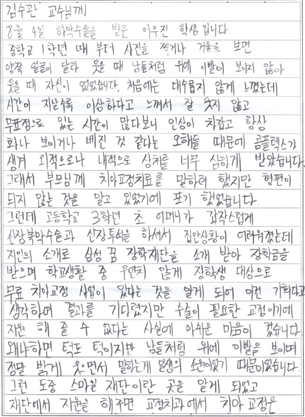 김수관 교수님께
8월 4일 하악수술을 받은 이유진 학생입니다
중학교 1학년 때 부터 사진을 찍거나 거울을 보면
양쪽 얼굴이 달라 웃을 때 남들처럼 위에 이빨이 보이지 않아
웃을 때 자신이 없었습니다. 처음에는 대수롭지 않게 느꼈는데
시간이 지날수록 이상하다고 느껴서 잘 웃지 않고
무표정으로 있는 시간이 많다보니 인상이 차갑고 항상
화나 보이거나 삐진 것 같다는 오해를 때문에 콤플렉스가
생겨 외적으로나 내적으로 상처를 너무 심하게 받았습니다.
그래서 부모님께 치아교정치료를 말하려 했지만 형편이
되지 않는 것을 알고 있었기에 포기 했었습니다
그런데 고등학교 3학년 초 어머니가 갑작스럽게
신장복막수술과 신장투석을 하셔서 집안상황이 어려워졌는데
지인의 소개로 삼성 꿈 장학재단을 소개 받아 장학금을
받으며 학교생활 중 우연치 않게 장학생 대상으로
무료 치아교정 사업이 있다는 것을 알게 되어 이런 기회라고
생각하며 결과를 기다렸지만 수술이 필요한 교정이기에
지원 해 줄 수 없다는 사실에 아쉬운 마음이 컸습니다.
왜냐하면 턱도 턱이지만 남들처럼 위에 이빨을 보이며
정말 밝게 웃으면서 말하는게 일생의 소원이었기 때문이었습니다
그런 도중 스마일 재단이란 곳을 알게 되었고
재단에서 지원을 해주면 교정치과에서 치아 교정은